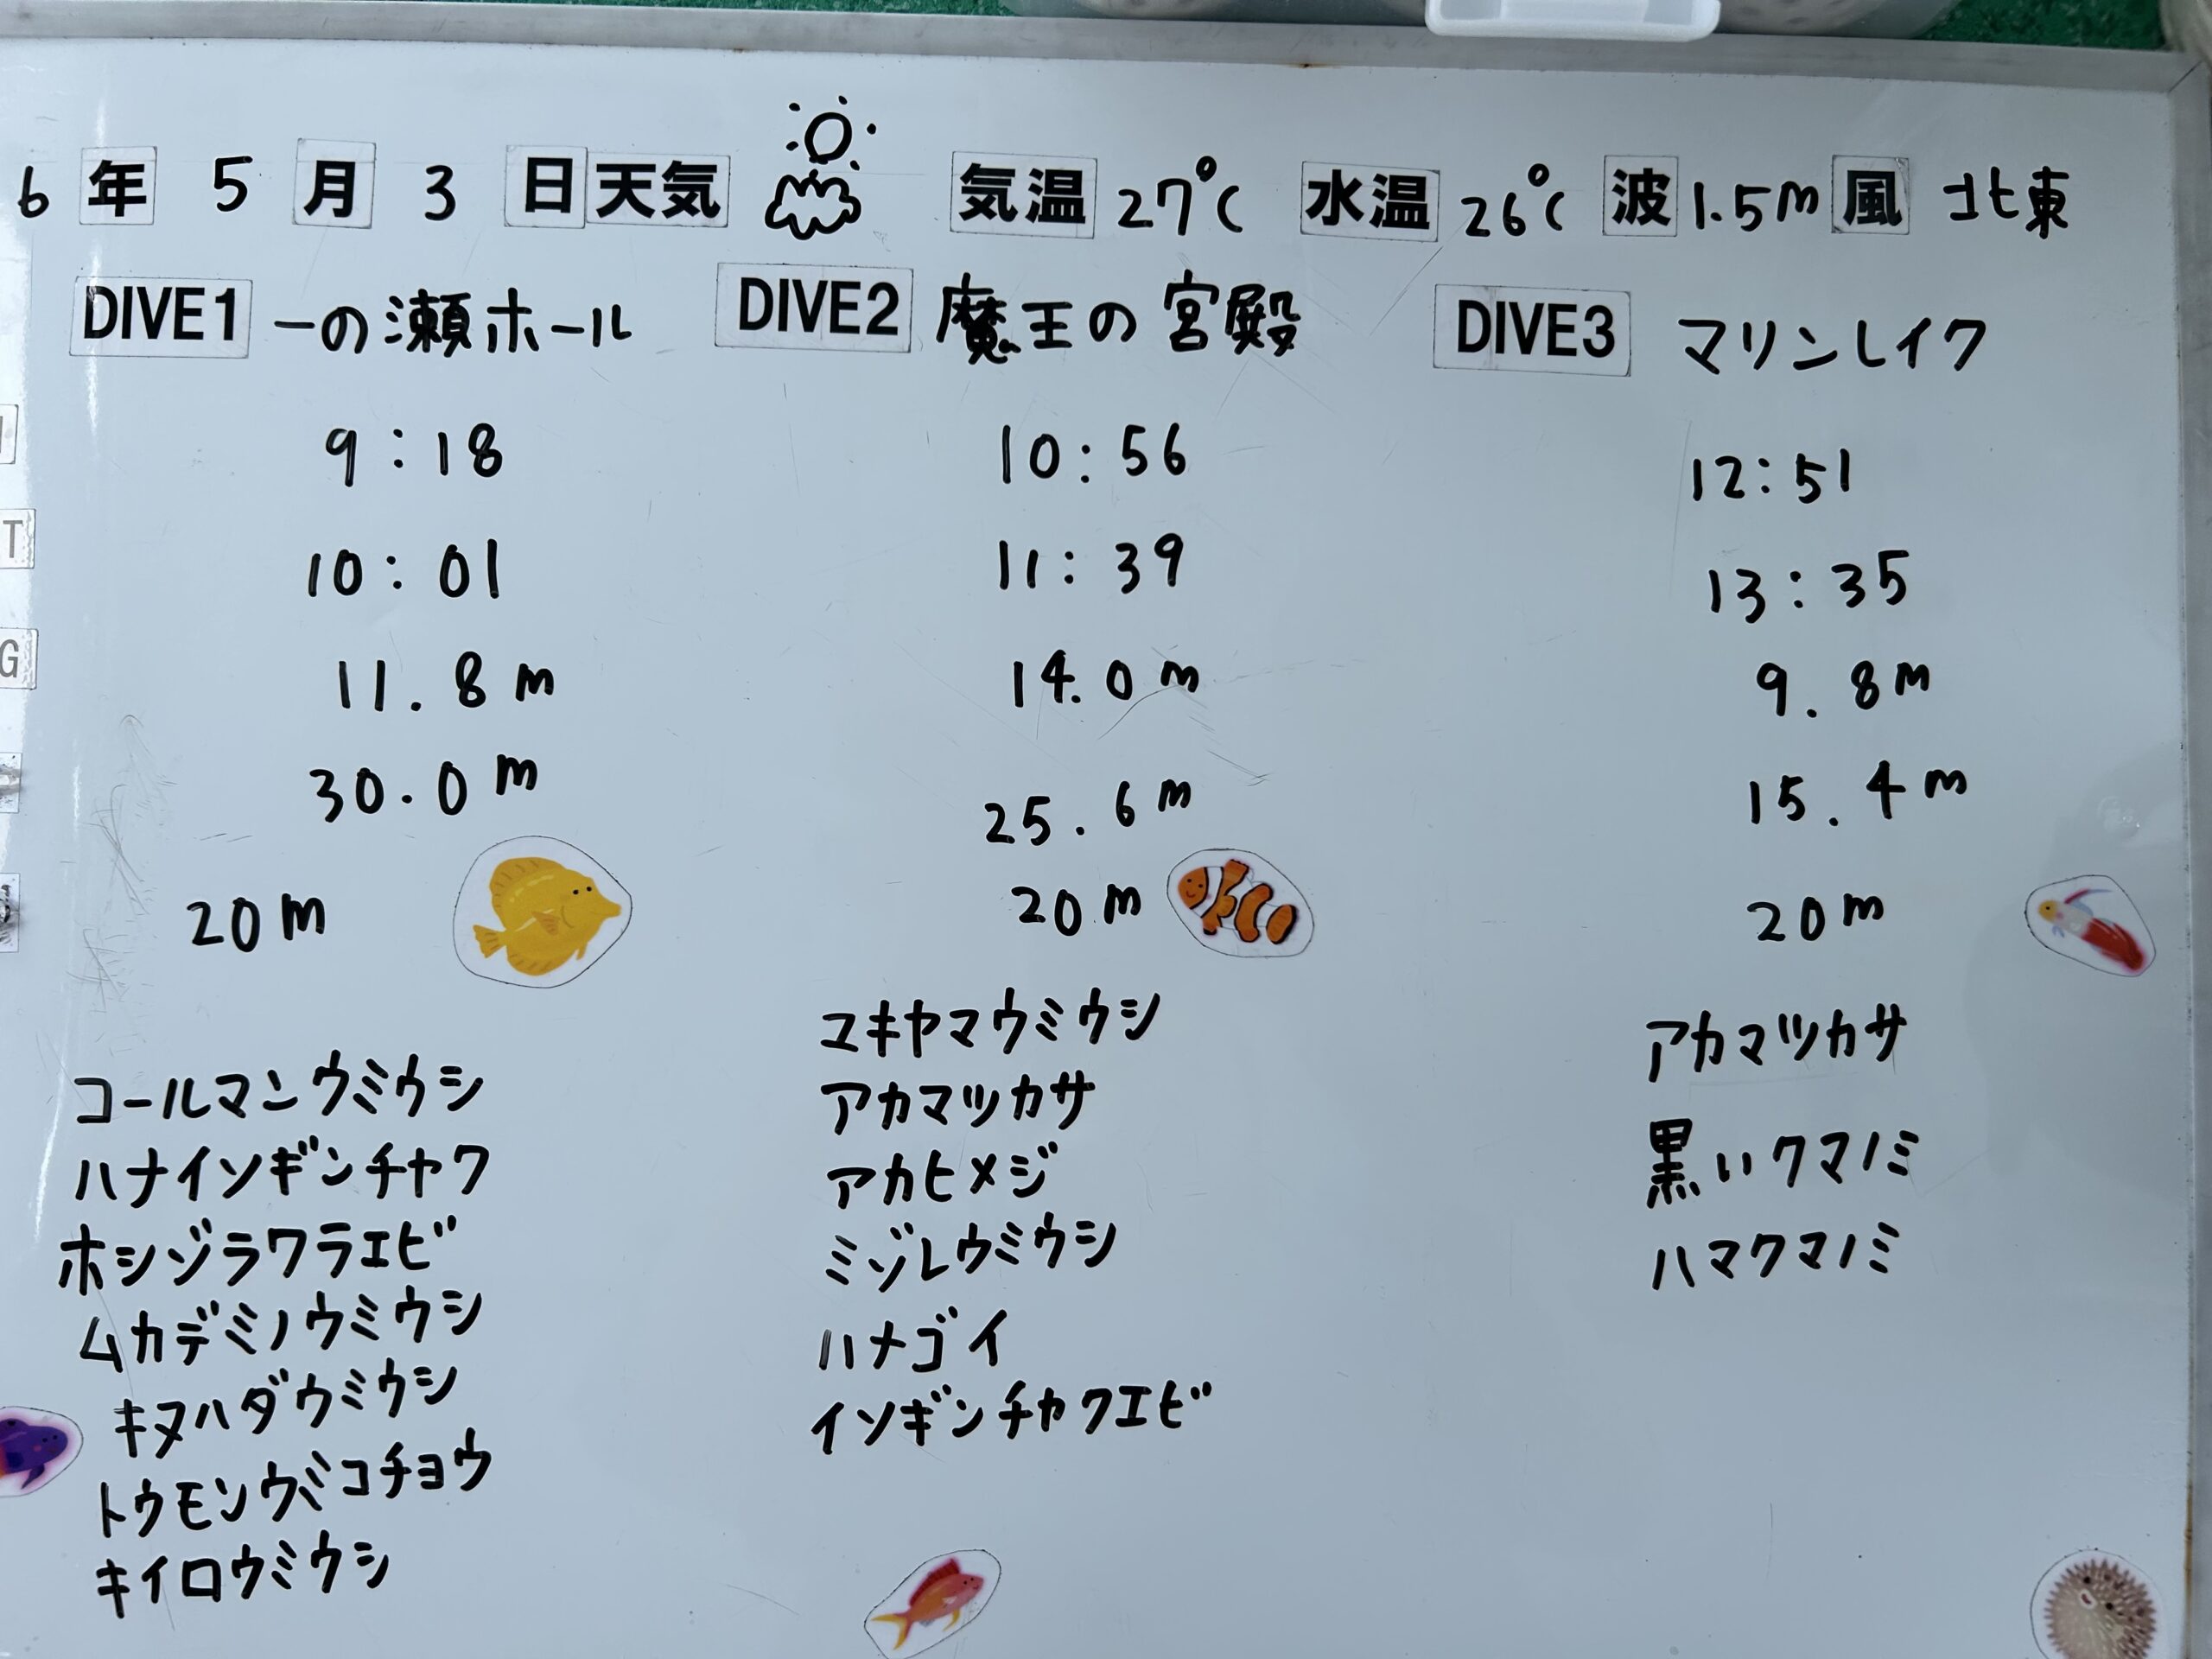 6 年 5 月 3 日 天気 気温 27℃ 水温 26℃ 波 1.5m 風 北東
DIVE1 一の瀬ホール
9:18
10:01
11.8m
30.0m
20m
コールマンウミウシ
ハナイソギンチャク
ホシゾラワラエビ
ムカデミノウミウシ
キヌハダウミウシ
トウモンウミコチョウ
キイロウミウシ
DIVE2 魔王の宮殿
10:56
11:39
14.0m
25.6m
20m
ユキヤマウミウシ
アカマツカサ
アカヒメジ
ミゾレウミウシ
ハナゴイ
イソギンチャクエビ
DIVE3 マリンレイク
12:51
13:35
9.8m
15.4m
20m
アカマツカサ
黒いクマノミ
ハマクマノミ
T
G